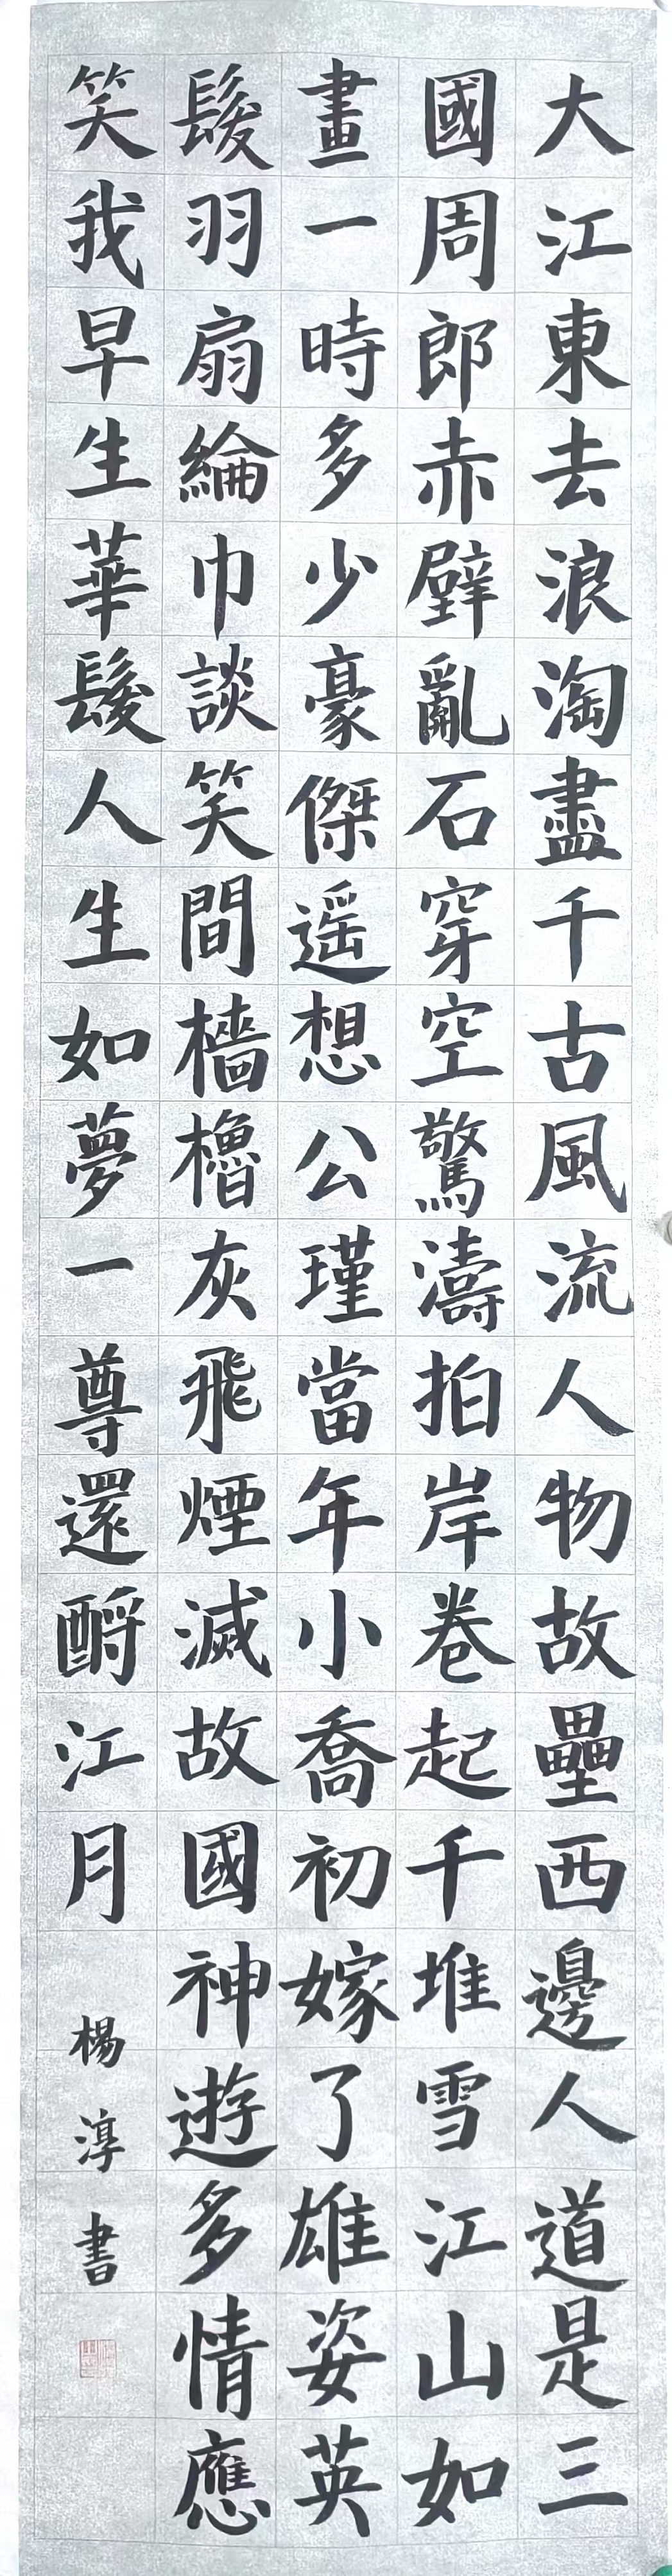 大江東去浪淘盡千古風流人物故壘西邊人道是三
國周郎赤壁亂石穿空驚濤拍岸卷起千堆雪江山如
畫一時多少豪傑遥想公瑾當年小喬初嫁了雄姿英
髮羽扇綸巾談笑間檣櫓灰飛煙滅故國神遊多情應
笑我早生華髮人生如夢一尊還酹江月
楊淳書